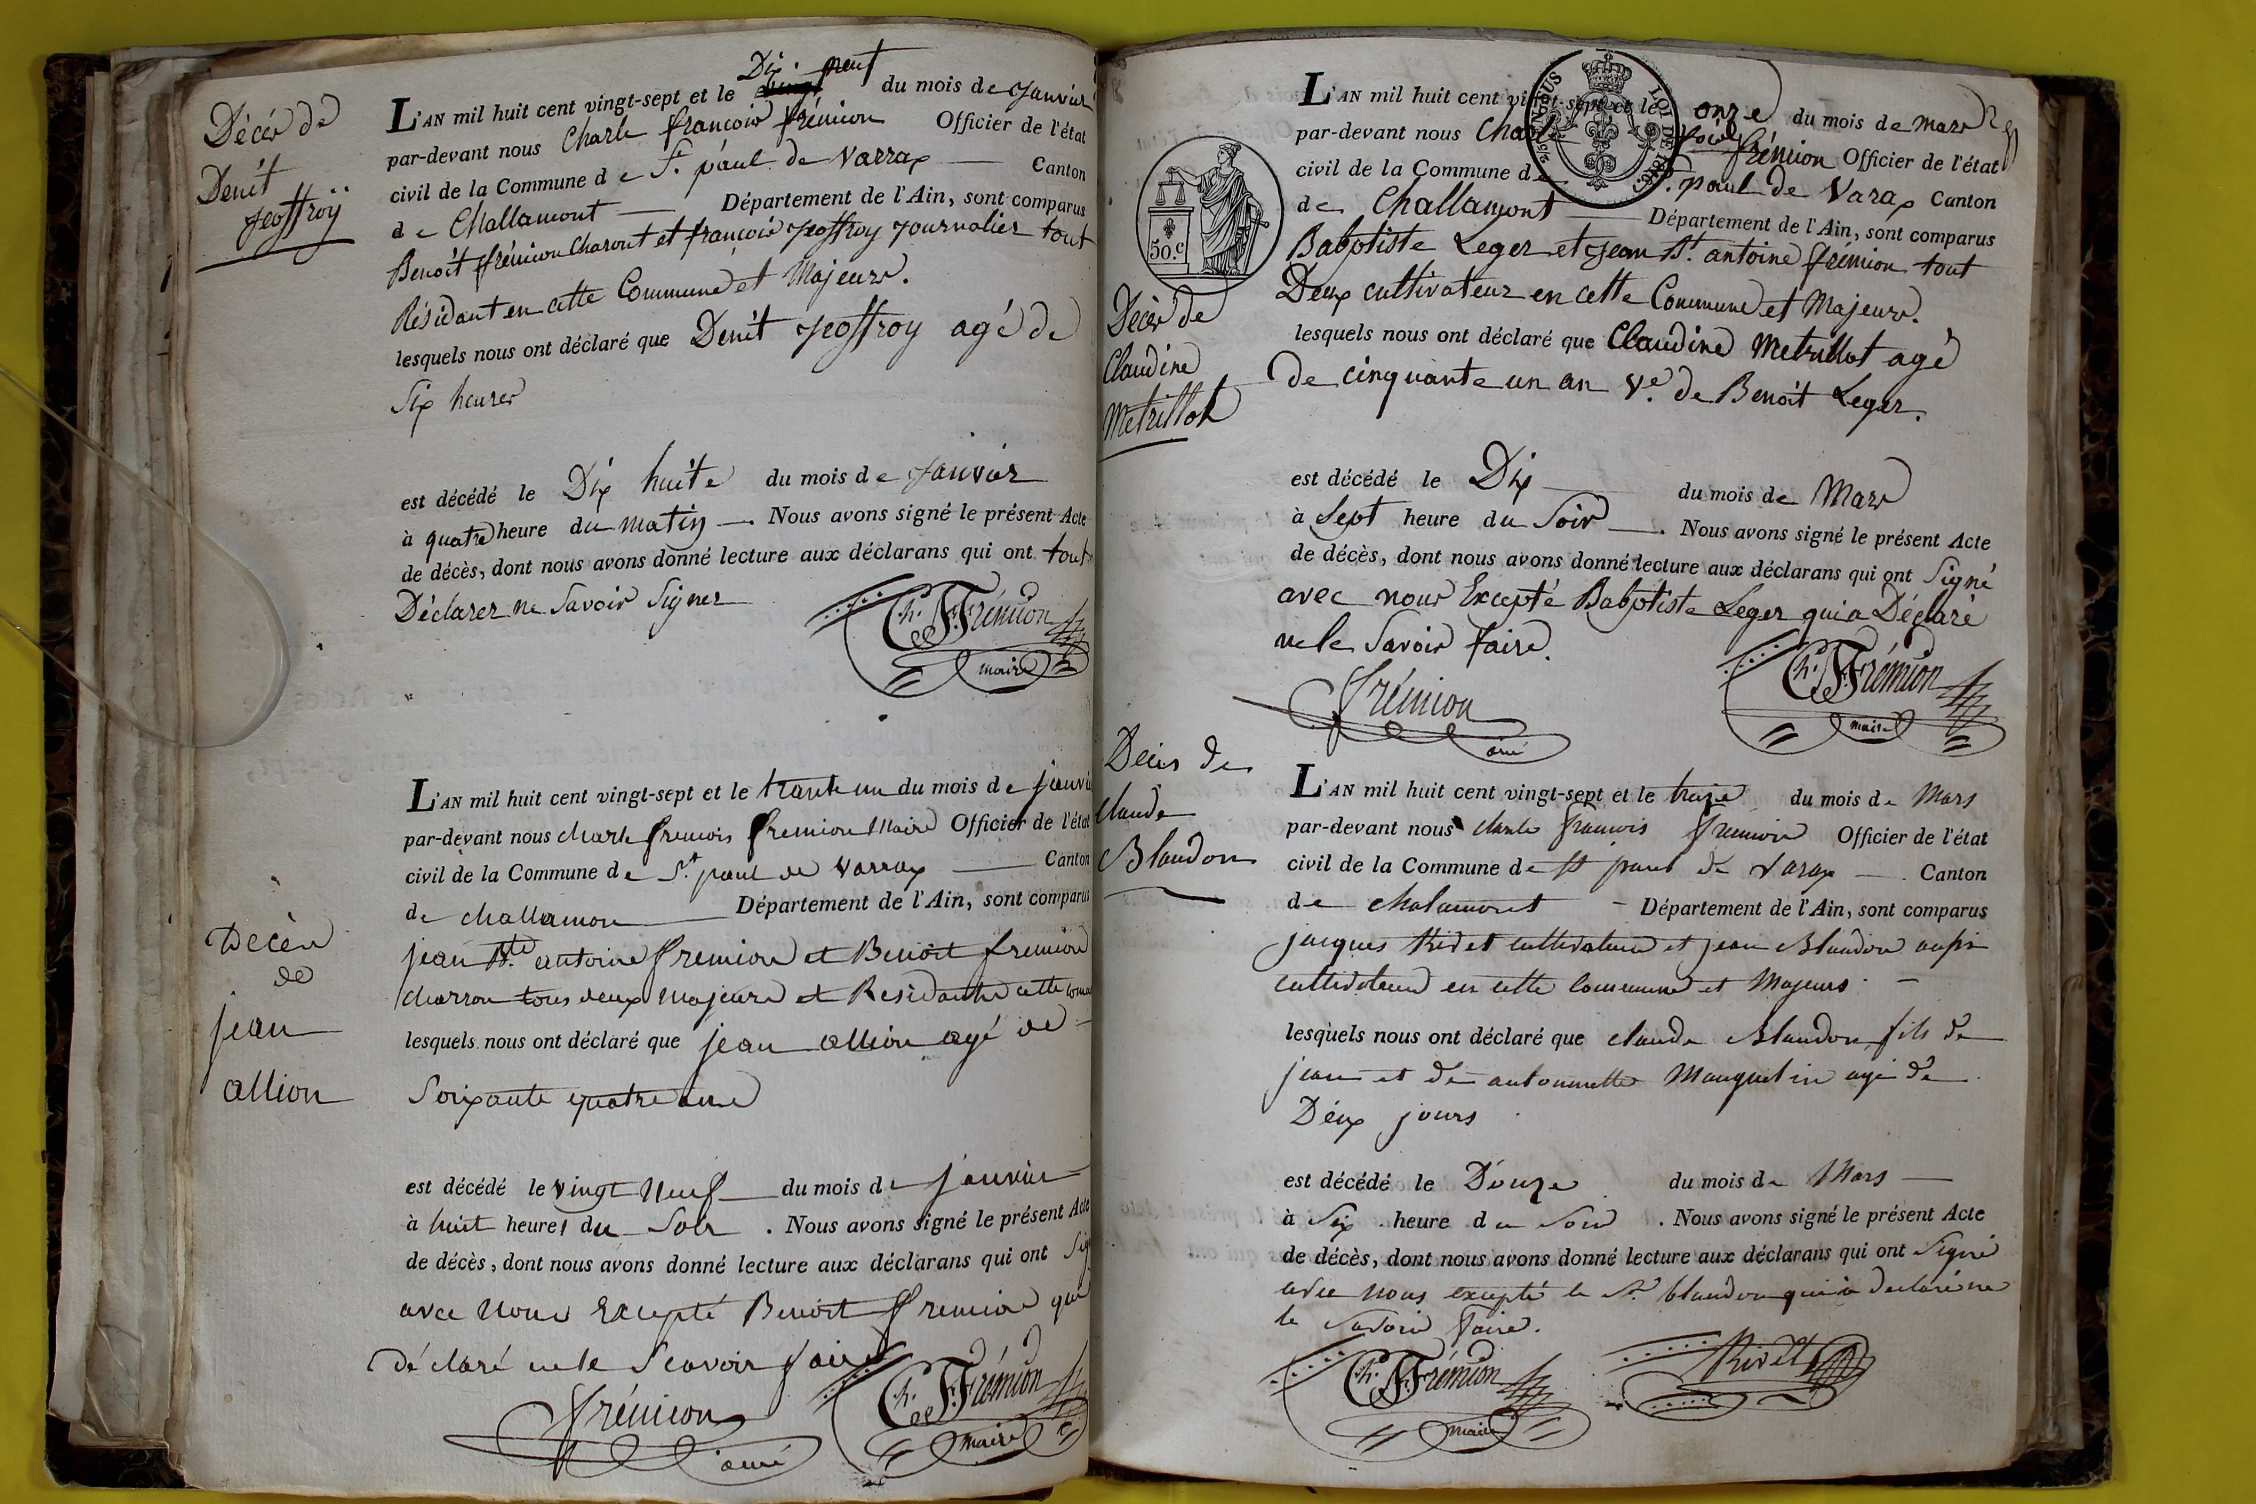 Décés de
Denit
Jeoffroÿ
Dix neuf
L'AN mil huit cent vingt-sept et le du mois de Janvier
par-devant nous Charle françois frémion Officier de l'état
civil de la Commune de St. paul de Varrax Canton
de Challamont Département de l'Ain, sont comparus
Benoit frémion Charont et françois Jeoffroy Journalier tout
Résidant en cette Commune et Majeurs.
lesquels nous ont déclaré que Denit Jeoffroy agé de
Six heures
est décédé le Dix huite du mois de Janvier
à quatre heure du matin. Nous avons signé le présent Acte
de décès, dont nous avons donné lecture aux déclarans qui ont tout
Déclarer ne Savoir Signer
Ch. F. Frémion
maire
L'AN mil huit cent vingt-sept et le trante un du mois de janvie
par-devant nous charle francois fremion Maire Officier de l'état
civil de la Commune de St. paul de Varrax Canton
de challamon Département de l'Ain, sont comparus
jean Bte. antoine fremion et Benoit fremion
charron tous deux Majeurs et Residant cette
lesquels nous ont déclaré que jean allion agé de
Soixante quatre ans
est décédé le vingt Neuf du mois de janvier
à huit heures du Soir. Nous avons signé le présent Acte
de décès, dont nous avons donné lecture aux déclarans qui ont Sig
avec Nous Excepté Benoit fremion qui
déclaré ne le Scavoir faire
Décès
de
jean
allion
frémion
ainé
Ch. F. Frémion
maire
50.c
LOI DE 1816.
L'AN mil huit cent vingt-sept et le onze du mois de mars
par-devant nous Charle frémion Officier de l'état
civil de la Commune de St. paul de Varax Canton
de Challamont Département de l'Ain, sont comparus
Babptiste Leger et Jean Bt. antoine frémion tout
Deux cultivateur en cette Commune et Majeurs.
lesquels nous ont déclaré que Claudine Metrillot agé
de cinquante un an Ve. de Benoit Leger.
Décés de
Claudine
Metrillot
est décédé le Dix du mois de Mars
à Sept heure du Soir. Nous avons signé le présent Acte
de décès, dont nous avons donné lecture aux déclarans qui ont Signé
avec nous Excepté Babptiste Leger qui a Déclaré
ne le Savoir faire.
frémion
ainé
Ch. F. Frémion
maire
Décès de
claude
Blandon
L'AN mil huit cent vingt-sept et le treize du mois de Mars
par-devant nous charle francois fremion Officier de l'état
civil de la Commune de St paul de Varax Canton
de chalamont Département de l'Ain, sont comparus
jacques Rivet cultivateur et jean Blandon aussi
cultivateur en cette commune et Majeurs
lesquels nous ont déclaré que claude Blandon fils de
jean et de antoinette Manguelin agé de
Deux jours
est décédé le Douze du mois de Mars
à Six heure du Soir. Nous avons signé le présent Acte
de décès, dont nous avons donné lecture aux déclarans qui ont Signé
avec nous excepté le Sr. blandon qui à declaré ne
le Savoir faire.
Ch. F. Frémion
maire
Rivet